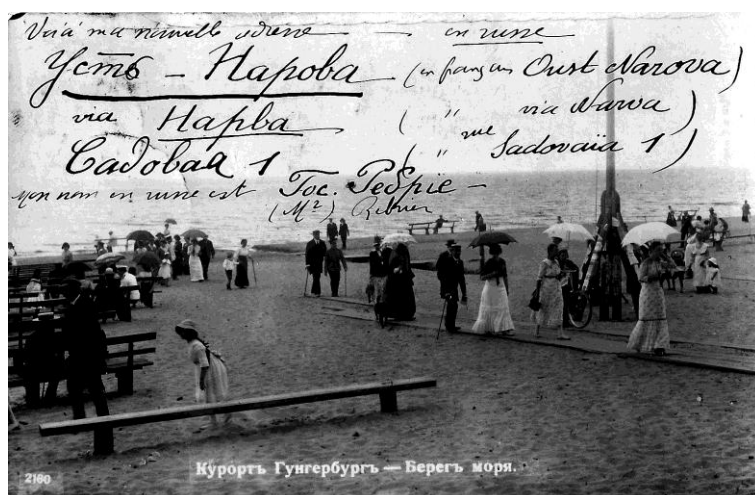 Voici ma nouvelle adresse — en russe
Усть - Нарова (en français Oust Narova)
via Нарва ( " via Narva )
Садовая 1 ( " rue Sadovaïa 1 )
mon nom en russe est Гос. Ребрie -
(Mr)
Курортъ Гунгербургъ — Берегъ моря.
2160